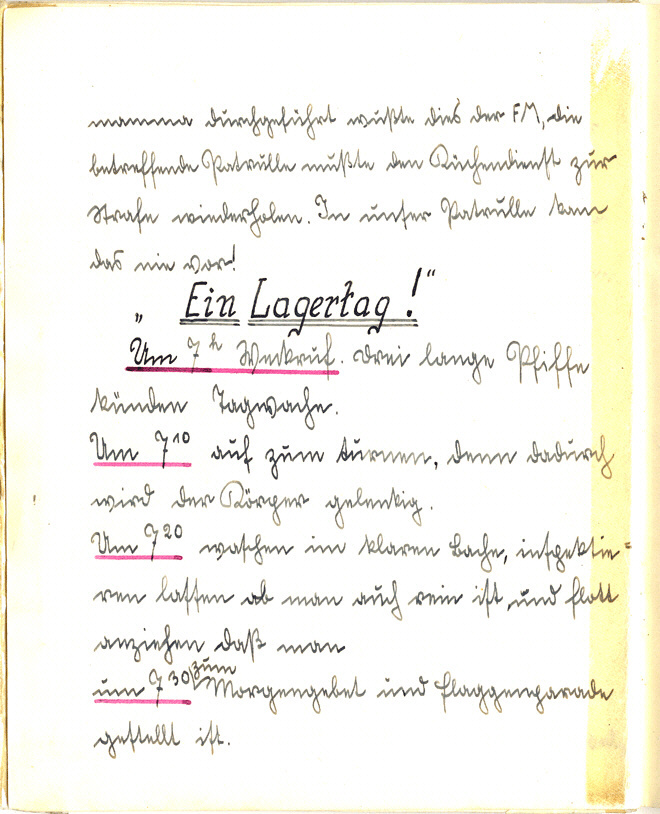 mamma durchgeführt wußte dies der FM, die
betreffende Patrulle mußte den Küchendienst zur
Strafe wiederholen. In unser Patrulle kam
das nie vor!
„Ein Lagertag!“
Um 7h Weckruf. Drei lange Pfiffe
künden Tagwache.
Um 7¹⁰ auf zum turnen, denn dadurch
wird der Körper gelenkig.
Um 7²⁰ waschen im klaren Bache, inspektie=
ren lassen ob man auch rein ist, und flott
anziehen daß man
um 7³⁰ zum Morgengebet und Flaggenparade
gestellt ist.